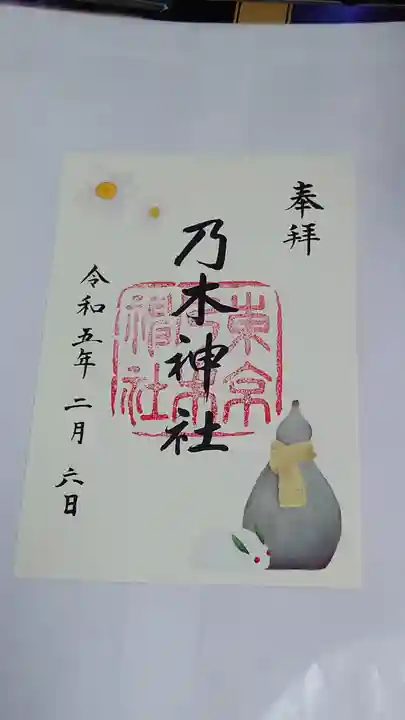 奉拝
乃木神社
東京乃木神社
令和五年二月六日